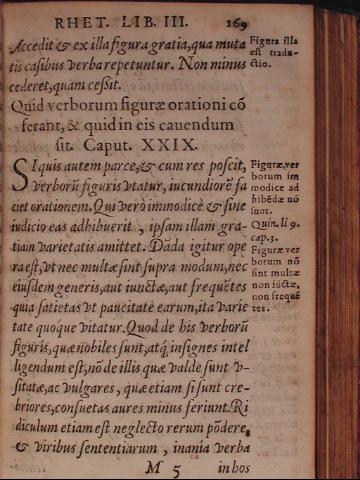 RHET. LIB. III. 169
Accedit & ex illa figura gratia, qua muta
tis casibus verba repetuntur. Non minus
cederet, quàm cessit.
Quid verborum figuræ orationi cō
ferant, & quid in eis cauendum
sit. Caput. XXIX.
SI quis autem parce, & cum res poscit,
verborū figuris vtatur, iucundiorē fa
ciet orationem. Qui verò immodicè & sine
iudicio eas adhibuerit, ipsam illam gra-
tiam varietatis amittet. Dāda igitur ope
ra est, vt nec multæ sint supra modum, nec
eiusdem generis, aut iunctæ, aut frequētes
quia satietas vt paucitate earum, ita varie
tate quoque vitatur. Quod de his verborū
figuris, quæ nobiles sunt, atq́; insignes intel
ligendum est, nō de illis quæ valde sunt v-
sitatæ, ac vulgares, quæ etiam si sunt cre-
briores, consuetas aures minus feriunt. Ri
diculum etiam est neglecto rerum pōdere,
& viribus sententiarum, inania verba
M 5 in hos
Figura illa
est tradu-
ctio.
Figuræ, ver
borum im
modice ad
hibēdæ nō
sunt.
Quin. li 9.
cap. 3.
Figuræ ver
borum nō
sint multæ
non iūctæ,
non frequē
tes.